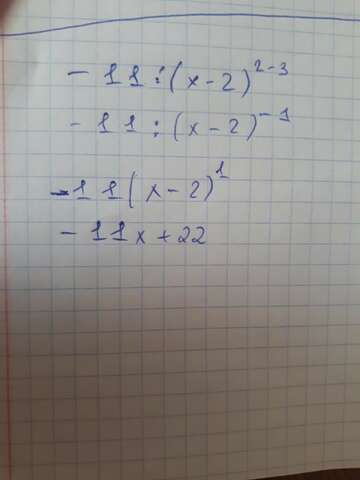 - 11 : (x - 2)^{2-3}
- 11 : (x - 2)^{-1}
- 11 (x - 2)^{1}
- 11x + 22